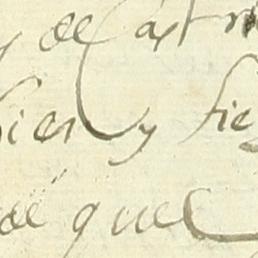 y de Cast
bien y fie
de que